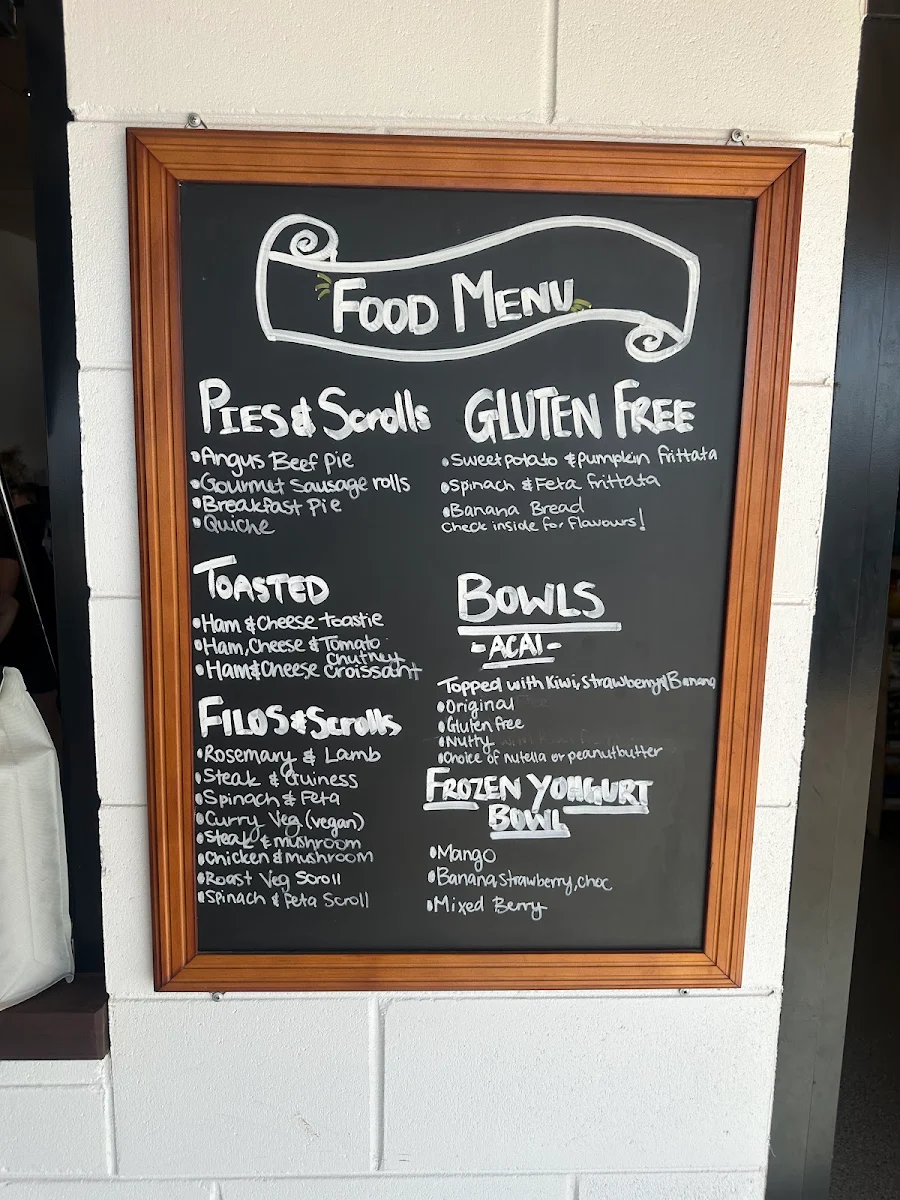 FOOD MENU
PIES & Scrolls
•Angus Beef Pie
•Gourmet Sausage rolls
•Breakfast Pie
•Quiche
TOASTED
•Ham & Cheese toastie
•Ham, Cheese & Tomato
Chutney
•Ham & Cheese croissant
FILOS & Scrolls
•Rosemary & Lamb
•Steak & Guiness
•Spinach & Feta
•Curry Veg (vegan)
•Steak & mushroom
•Chicken & mushroom
•Roast Veg Scroll
•Spinach & Feta Scroll
GLUTEN FREE
•Sweet potato & Pumpkin frittata
•Spinach & Feta frittata
•Banana Bread
Check inside for flavours!
BOWLS
- ACAI -
Topped with Kiwi, Strawberry & Banana
•Original
•Gluten free
•Nutty
•Choice of nutella or peanutbutter
FROZEN YOHGURT
BOWL
•Mango
•Banana, Strawberry, choc
•Mixed Berry